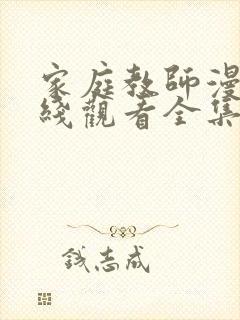 家庭教師漫
綫觀看全集
钱志成